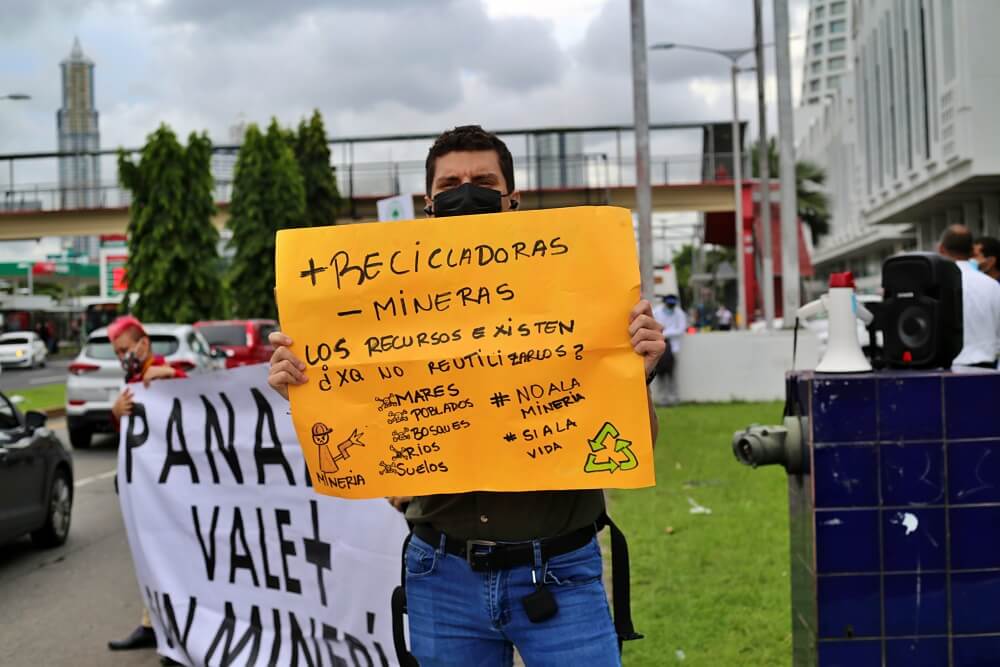 + RECICLADORAS
- MINERAS
LOS RECURSOS EXISTEN
¿XQ NO REUTILIZARLOS?
MARES
POBLADOS
BOSQUES
RÍOS
SUELOS
#NO A LA
MINERIA
#SI A LA
VIDA
MINERIA
PANA
VALE
MINERÍ